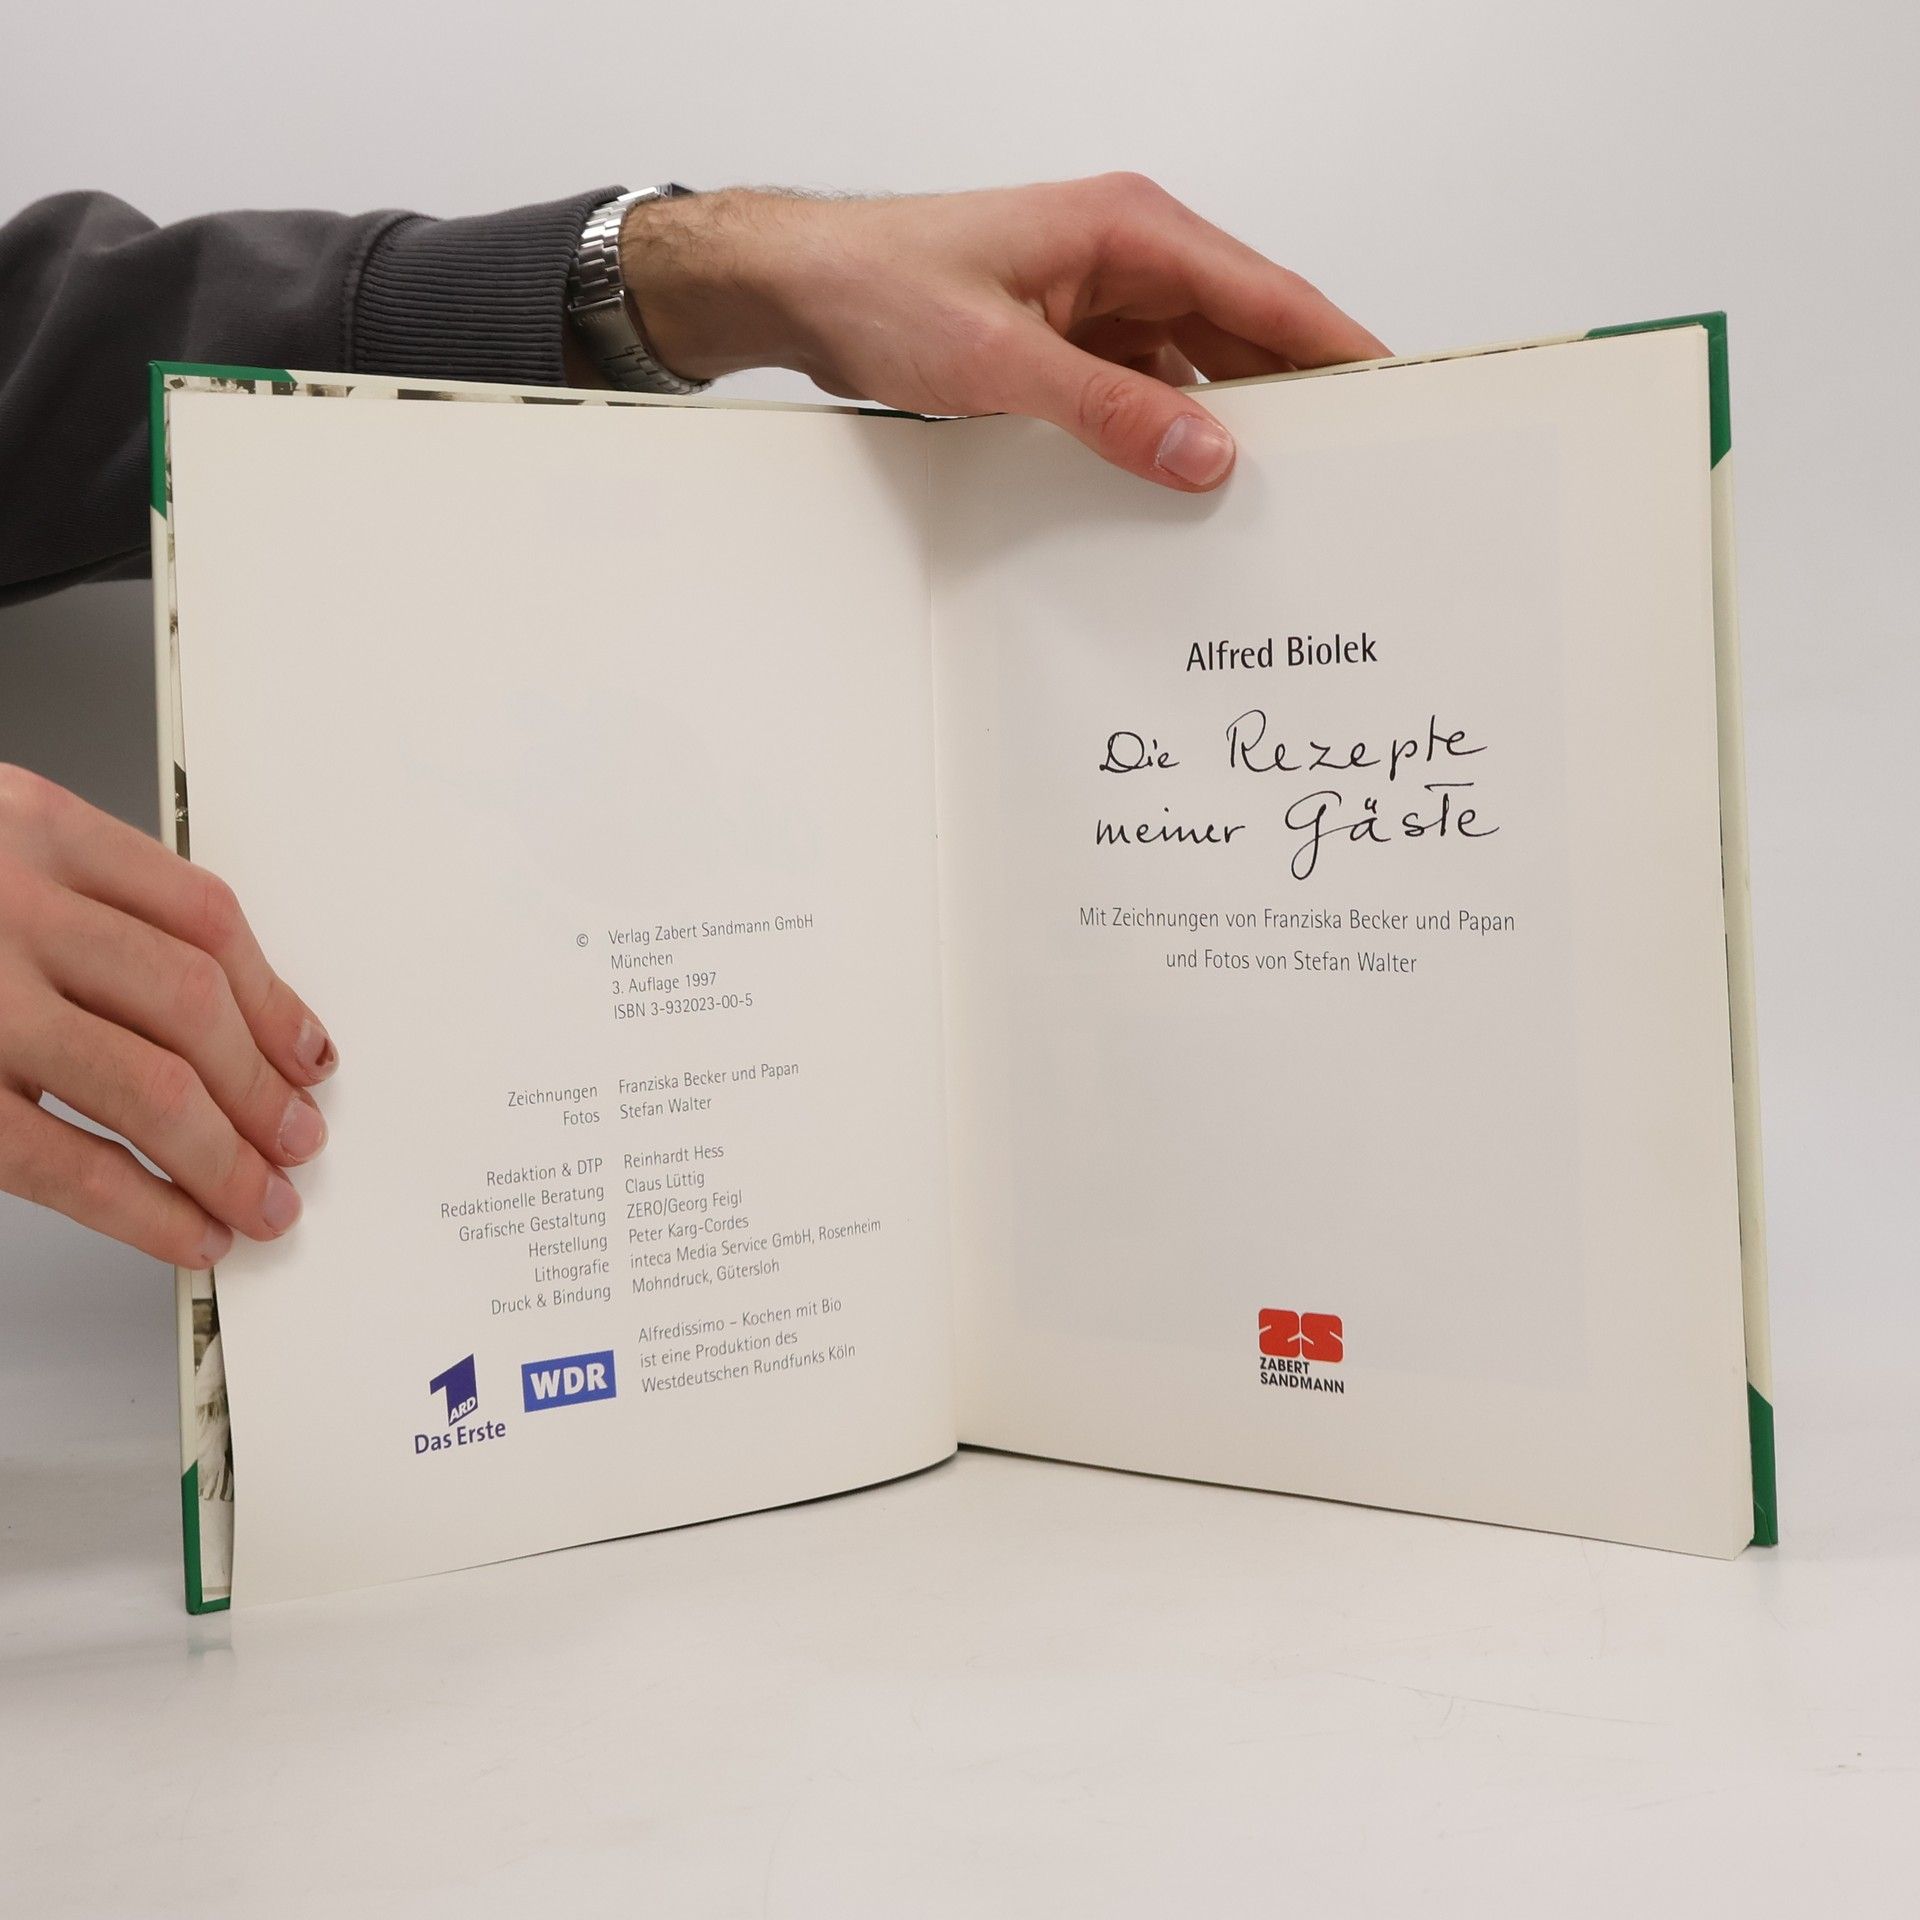 © Verlag Zabert Sandmann GmbH
München
3. Auflage 1997
ISBN 3-932023-00-5
Zeichnungen Franziska Becker und Papan
Fotos Stefan Walter
Redaktion & DTP Reinhardt Hess
Redaktionelle Beratung Claus Lüttig
Grafische Gestaltung ZERO/Georg Feigl
Herstellung Peter Karg-Cordes
Lithografie inteca Media Service GmbH, Rosenheim
Druck & Bindung Mohndruck, Gütersloh
Alfredissimo – Kochen mit Bio
ist eine Produktion des
Westdeutschen Rundfunks Köln
1
ARD
Das Erste
WDR
Alfred Biolek
Die Rezepte
meiner Gäste
Mit Zeichnungen von Franziska Becker und Papan
und Fotos von Stefan Walter
ZS
ZABERT
SANDMANN